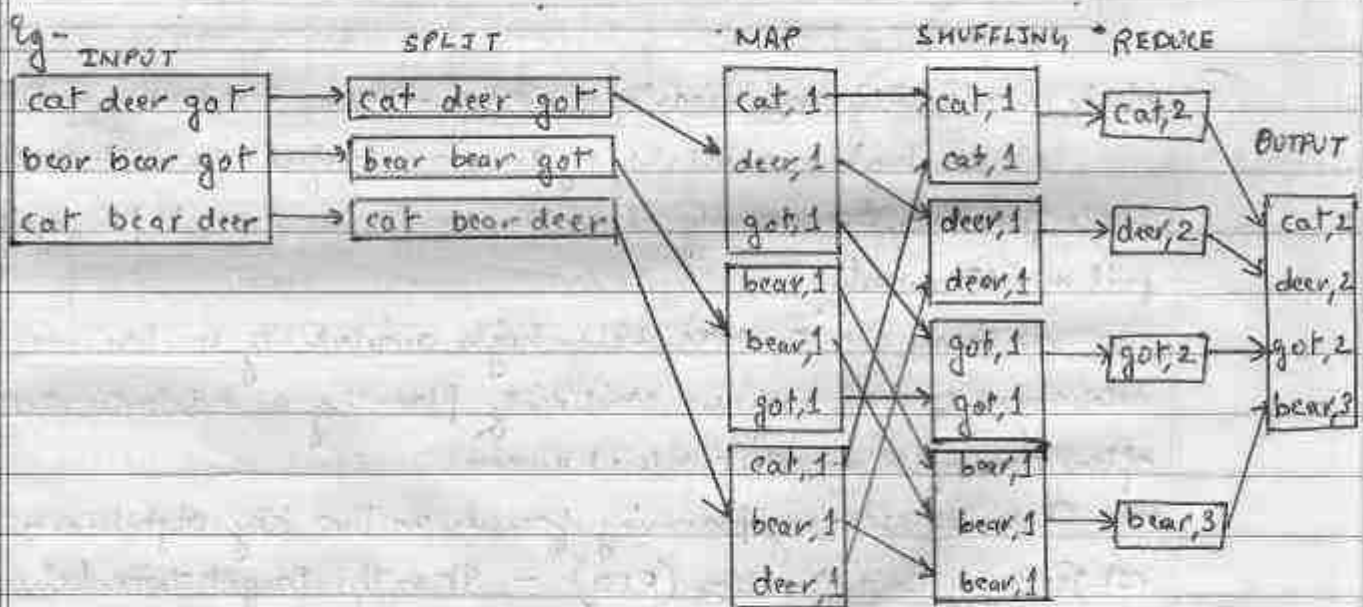 Eg-
INPUT
cat deer got
bear bear got
cat bear deer
SPLIT
cat deer got
bear bear got
cat bear deer
MAP
cat, 1
deer, 1
got, 1
bear, 1
bear, 1
got, 1
cat, 1
bear, 1
deer, 1
SHUFFLING
cat, 1
cat, 1
deer, 1
deer, 1
got, 1
got, 1
bear, 1
bear, 1
bear, 1
REDUCE
cat, 2
deer, 2
got, 2
bear, 3
OUTPUT
cat, 2
deer, 2
got, 2
bear, 3